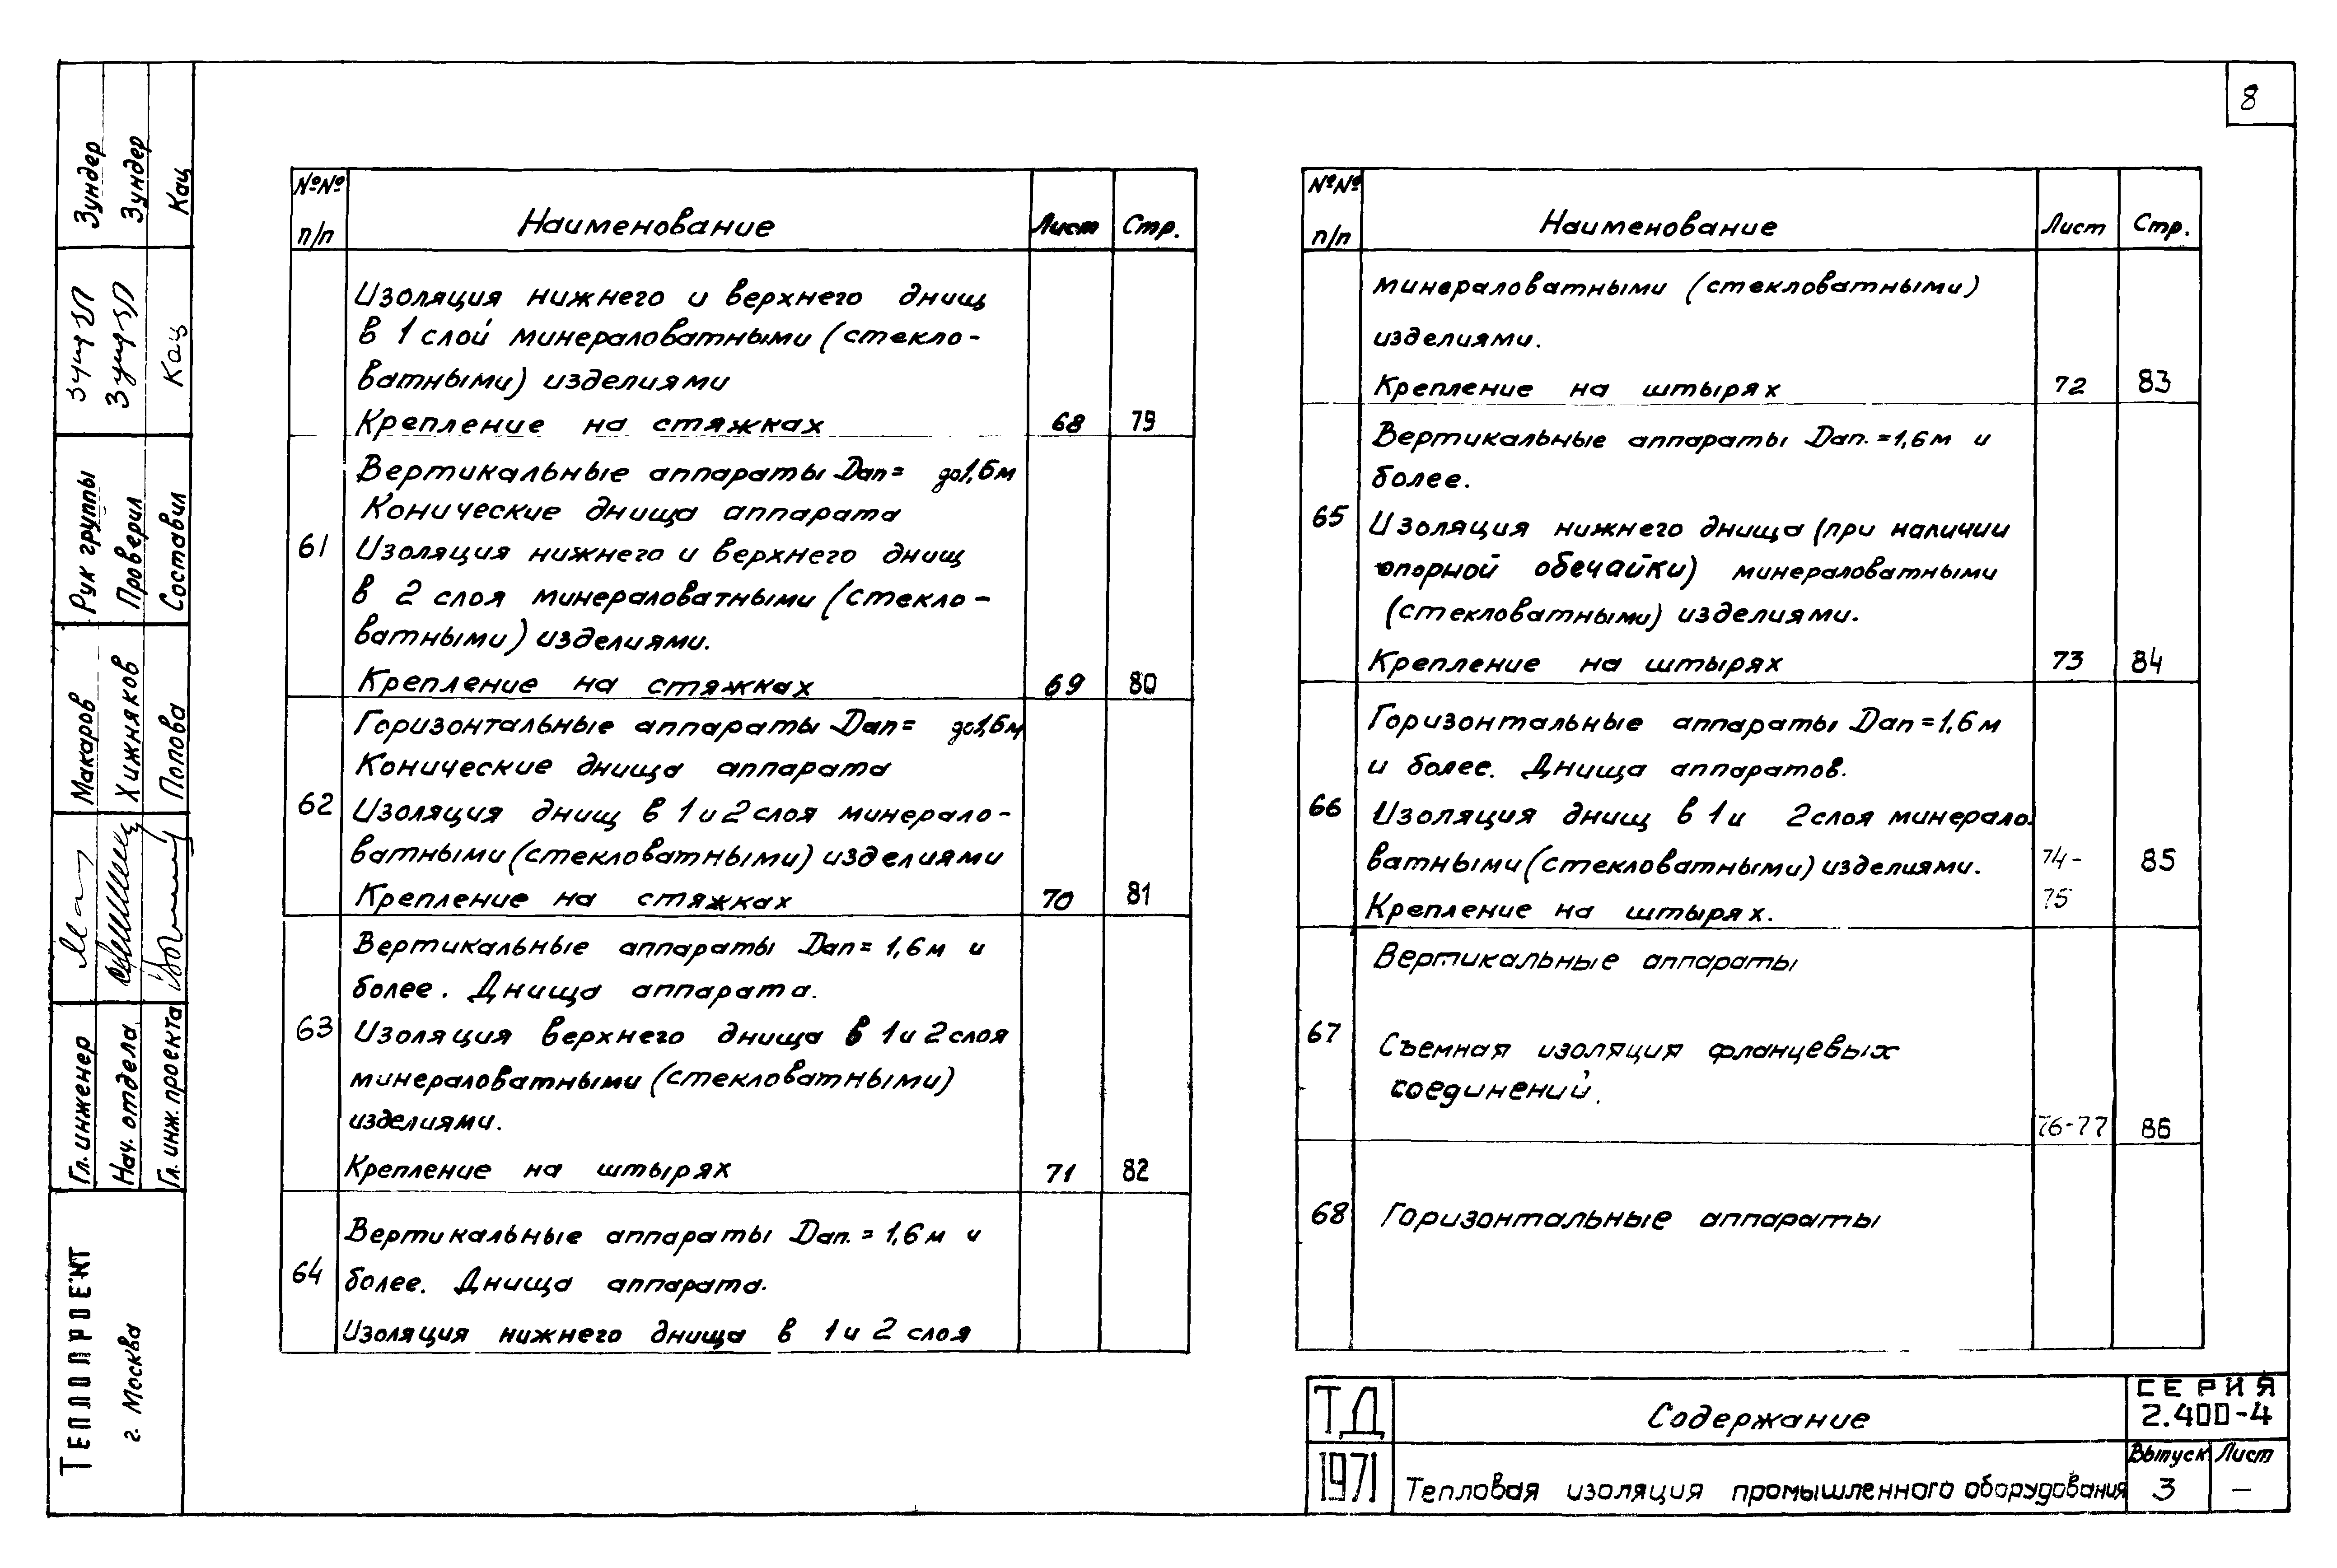 8
№№ п/п Наименование Лист Стр.
Изоляция нижнего и верхнего днищ
в 1 слой минераловатными (стекло-
ватными) изделиями
Крепление на стяжках 68 79
Вертикальные аппараты Dап= до1,6м
Конические днища аппарата
61 Изоляция нижнего и верхнего днищ
в 2 слоя минераловатными (стекло-
ватными) изделиями.
Крепление на стяжках 69 80
Горизонтальные аппараты Dап= до1,6м
Конические днища аппарата
62 Изоляция днищ в 1 и 2 слоя минерало-
ватными (стекловатными) изделиями
Крепление на стяжках 70 81
Вертикальные аппараты Dап= 1,6м и
более. Днища аппарата.
63 Изоляция верхнего днища в 1 и 2 слоя
минераловатными (стекловатными)
изделиями.
Крепление на штырях 71 82
Вертикальные аппараты Dап. = 1,6м и
64 более. Днища аппарата.
Изоляция нижнего днища в 1 и 2 слоя
№№ п/п Наименование Лист Стр.
минераловатными (стекловатными)
изделиями.
Крепление на штырях 72 83
Вертикальные аппараты Dап. =1,6м и
более.
65 Изоляция нижнего днища (при наличии
опорной обечайки) минераловатными
(стекловатными) изделиями.
Крепление на штырях 73 84
Горизонтальные аппараты Dап =1,6м
и более. Днища аппаратов.
66 Изоляция днищ в 1 и 2 слоя минерало-
ватными (стекловатными) изделиями. 74- 85
Крепление на штырях. 75
Вертикальные аппараты
67 Съемная изоляция фланцевых
соединений.
76-77 86
68 Горизонтальные аппараты
ТД Содержание СЕРИЯ
2.400-4
1971 Тепловая изоляция промышленного оборудования
Выпуск Лист
3 —
Зундер
Зундер
Кац
Зунд
Зунд
Кац
Рук группы
Проверил
Составил
Макаров
Хижняков
Попова
Гл. инженер
Нач. отдела
Гл. инж. проекта
ТЕПЛОПРОЕКТ
г. Москва